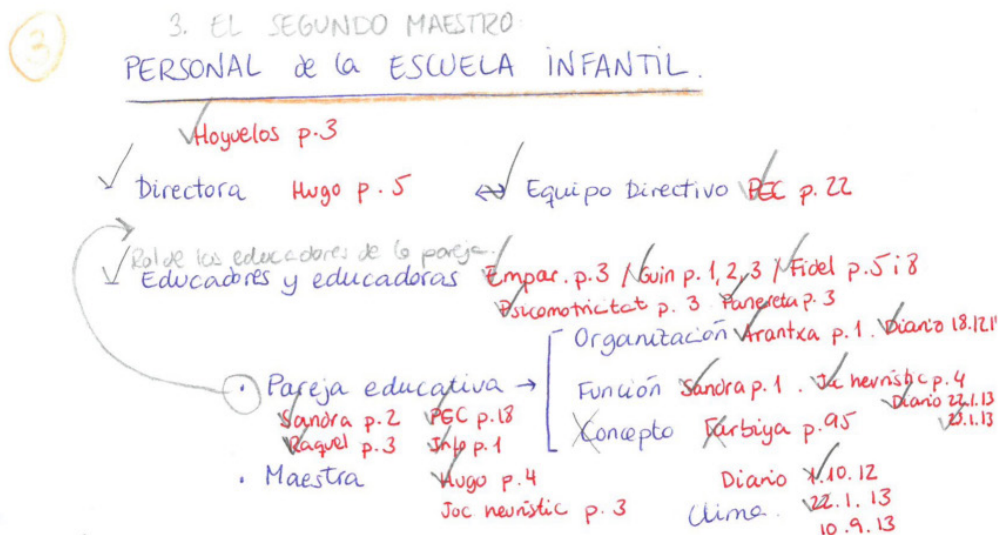 3
3. EL SEGUNDO MAESTRO.
PERSONAL de la ESCUELA INFANTIL.
Hoyuelos p.3
Directora Hugo p.5 ↔ Equipo Directivo PEC p.22
Rol de los educadores de la pareja.
Educadores y educadoras Empar. p.3 / Guin p.1,2,3 / Fidel p.5 i 8
Psicomotricitat p.3 Panereta p.3
Organización Arantxa p.1. Diario 18.12
· Pareja educativa → Función Sandra p.1. Joc heurístic p.4
Diario 22.1.13
Sandra p.2 PEC p.18 Concepto Farbiya p.95 23.1.13
Raquel p.3 Info p.1
· Maestra Hugo p.4 Diario 1.10.12
Joc heurístic p.3 Clima. 22.1.13
10.9.13